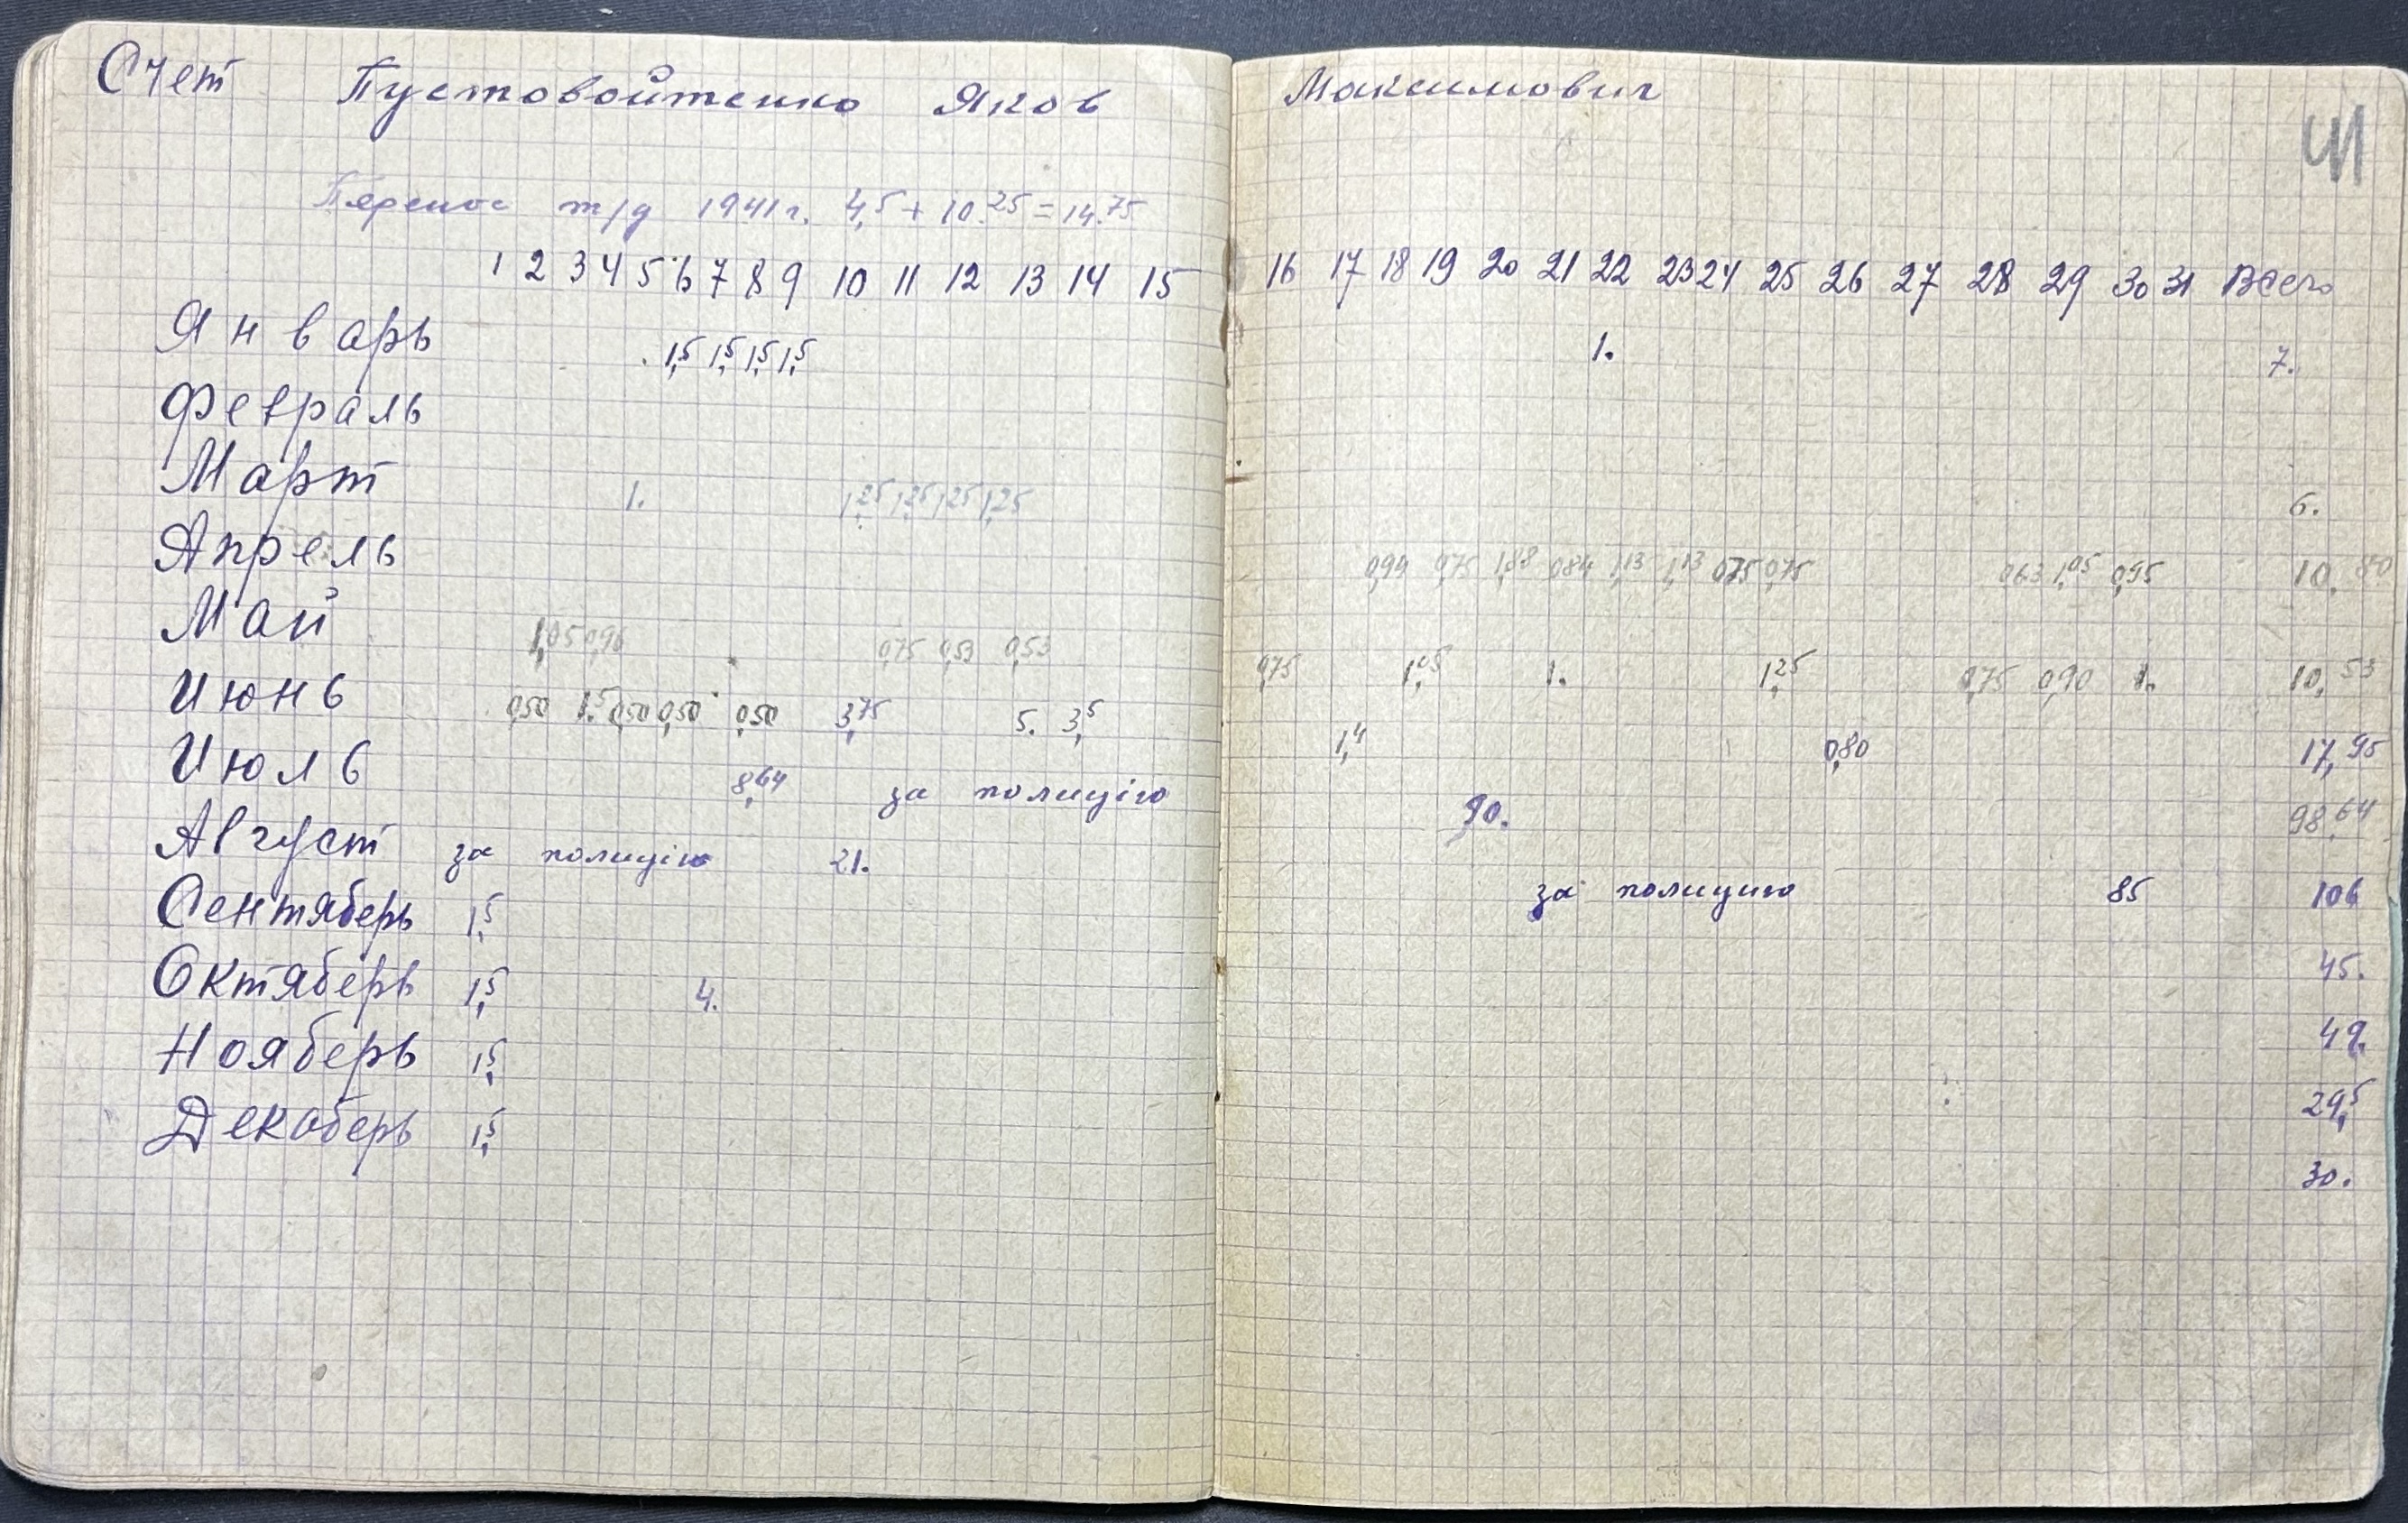 Счет Пустовойтенко Яков Максимович
41
Перенос т/д 1941г. 4,5 + 10.25 = 14.75
1 2 3 4 5 6 7 8 9 10 11 12 13 14 15 16 17 18 19 20 21 22 23 24 25 26 27 28 29 30 31 Всего
Январь 1,5 1,5 1,5 1,5 1. 7.
Февраль
Март 1. 1,25 1,25 1,25 1,25 6.
Апрель 0,94 0,75 1,88 0,84 1,13 1,13 0,75 0,75 0,63 1,05 0,95 10,80
Май 1,05 0,90 0,75 0,53 0,53 0,75 1,05 1. 1,25 0,75 0,90 1. 10,53
Июнь 0,50 1.5 0,50 0,50 0,50 3,75 5. 3,5 1,4 0,80 17,95
Июль 8,64 за полицію 90. 98,64
Август за полицію 21. за полицию 85 106
Сентяберь 1,5 45.
Октяберь 1,5 4. 49.
Нояберь 1,5 29,5
Декаберь 1,5 30.